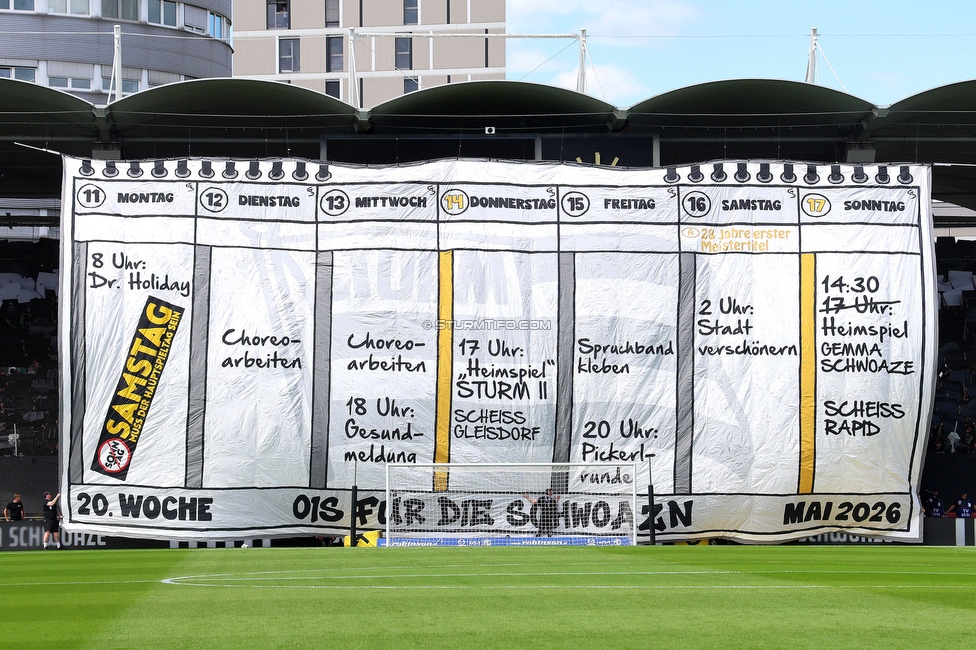 11 MONTAG
12 DIENSTAG
13 MITTWOCH
14 DONNERSTAG
15 FREITAG
16 SAMSTAG
17 SONNTAG
28 Jahre erster
Meistertitel
8 Uhr:
Dr. Holiday
SAMSTAG
MUSS DER HAUPTSPIELTAG SEIN
SONN
TAG
Choreo-
arbeiten
Choreo-
arbeiten
18 Uhr:
Gesund-
meldung
17 Uhr:
„Heimspiel“
STURM II
SCHEISS
GLEISDORF
Spruchband
kleben
20 Uhr:
Pickerl-
runde
2 Uhr:
Stadt
verschönern
14:30
17 Uhr:
Heimspiel
GEMMA
SCHWOAZE
SCHEISS
RAPID
WWW.STURMTIFO.COM
20. WOCHE
OIS FÜR DIE SCHWOAZN
MAI 2026